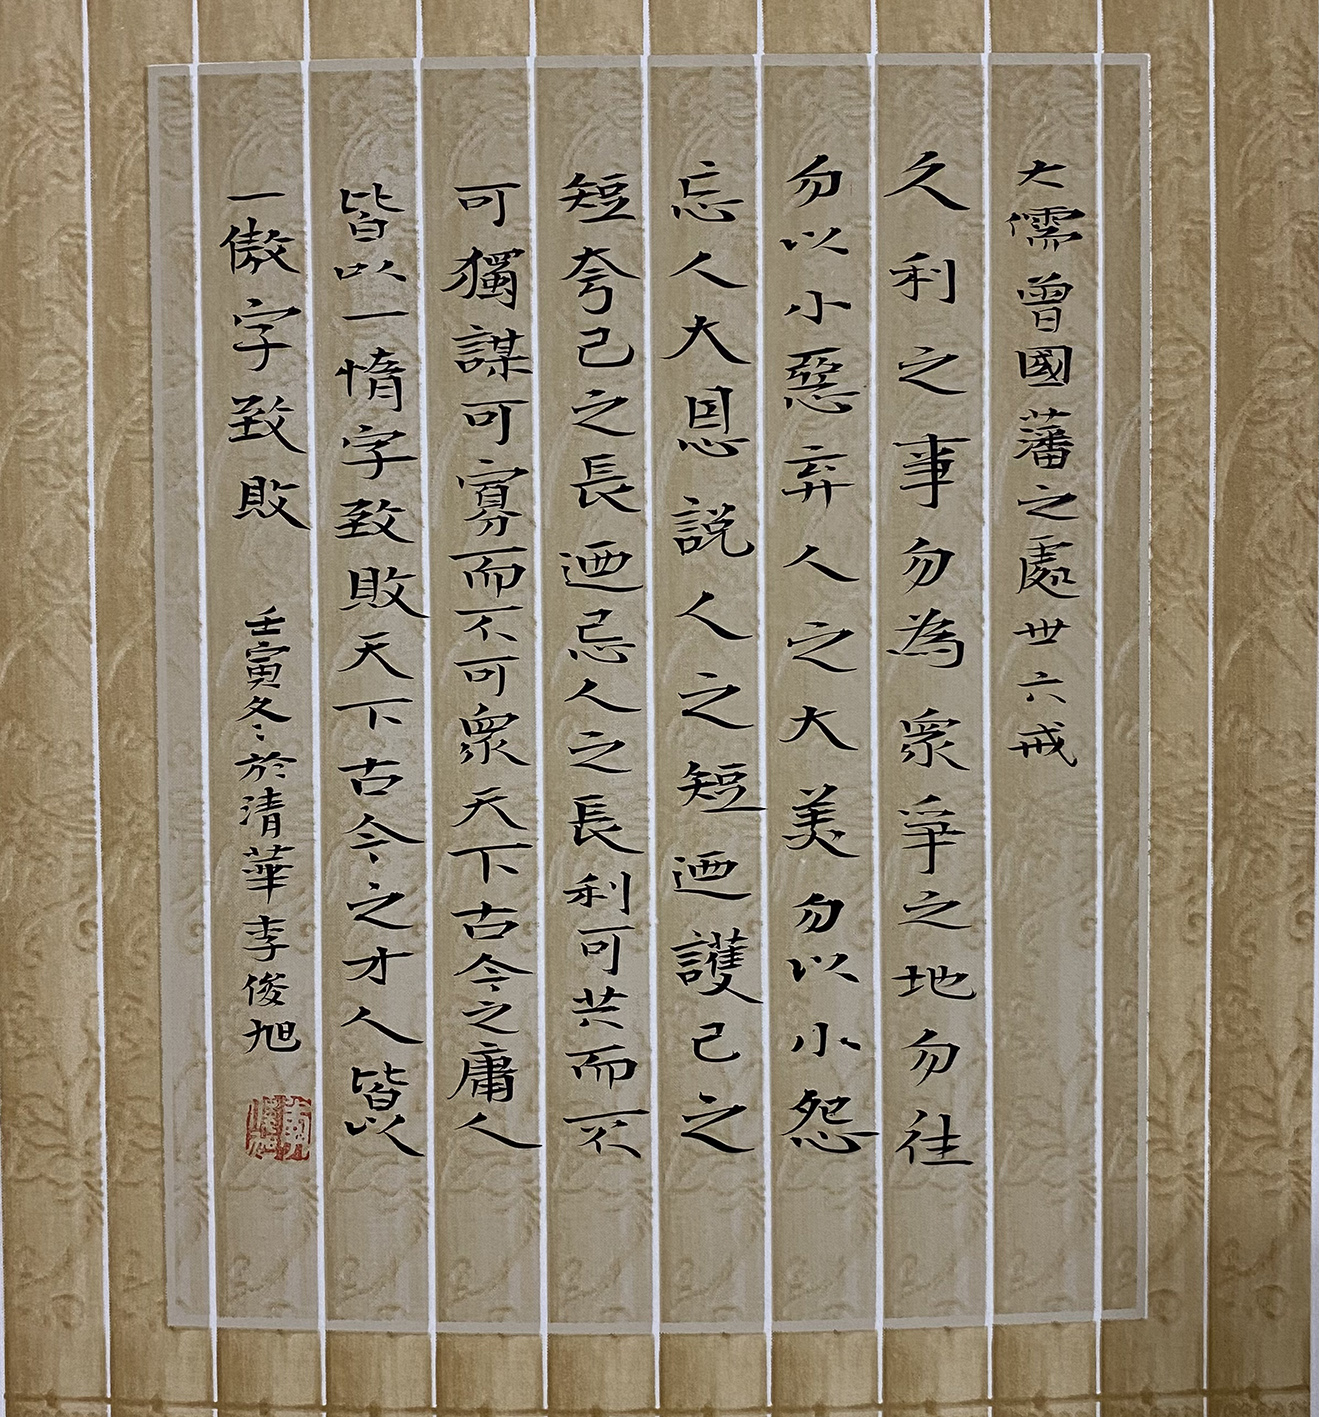 大儒曾國藩之處世六戒
久利之事勿為衆爭之地勿往
勿以小惡弃人之大美勿以小怨
忘人大恩説人之短迺護己之
短夸己之長迺忌人之長利可共而不
可獨謀可寡而不可衆天下古今之庸人
皆以一惰字致敗天下古今之才人皆以
一傲字致敗
壬寅冬於清華李俊旭